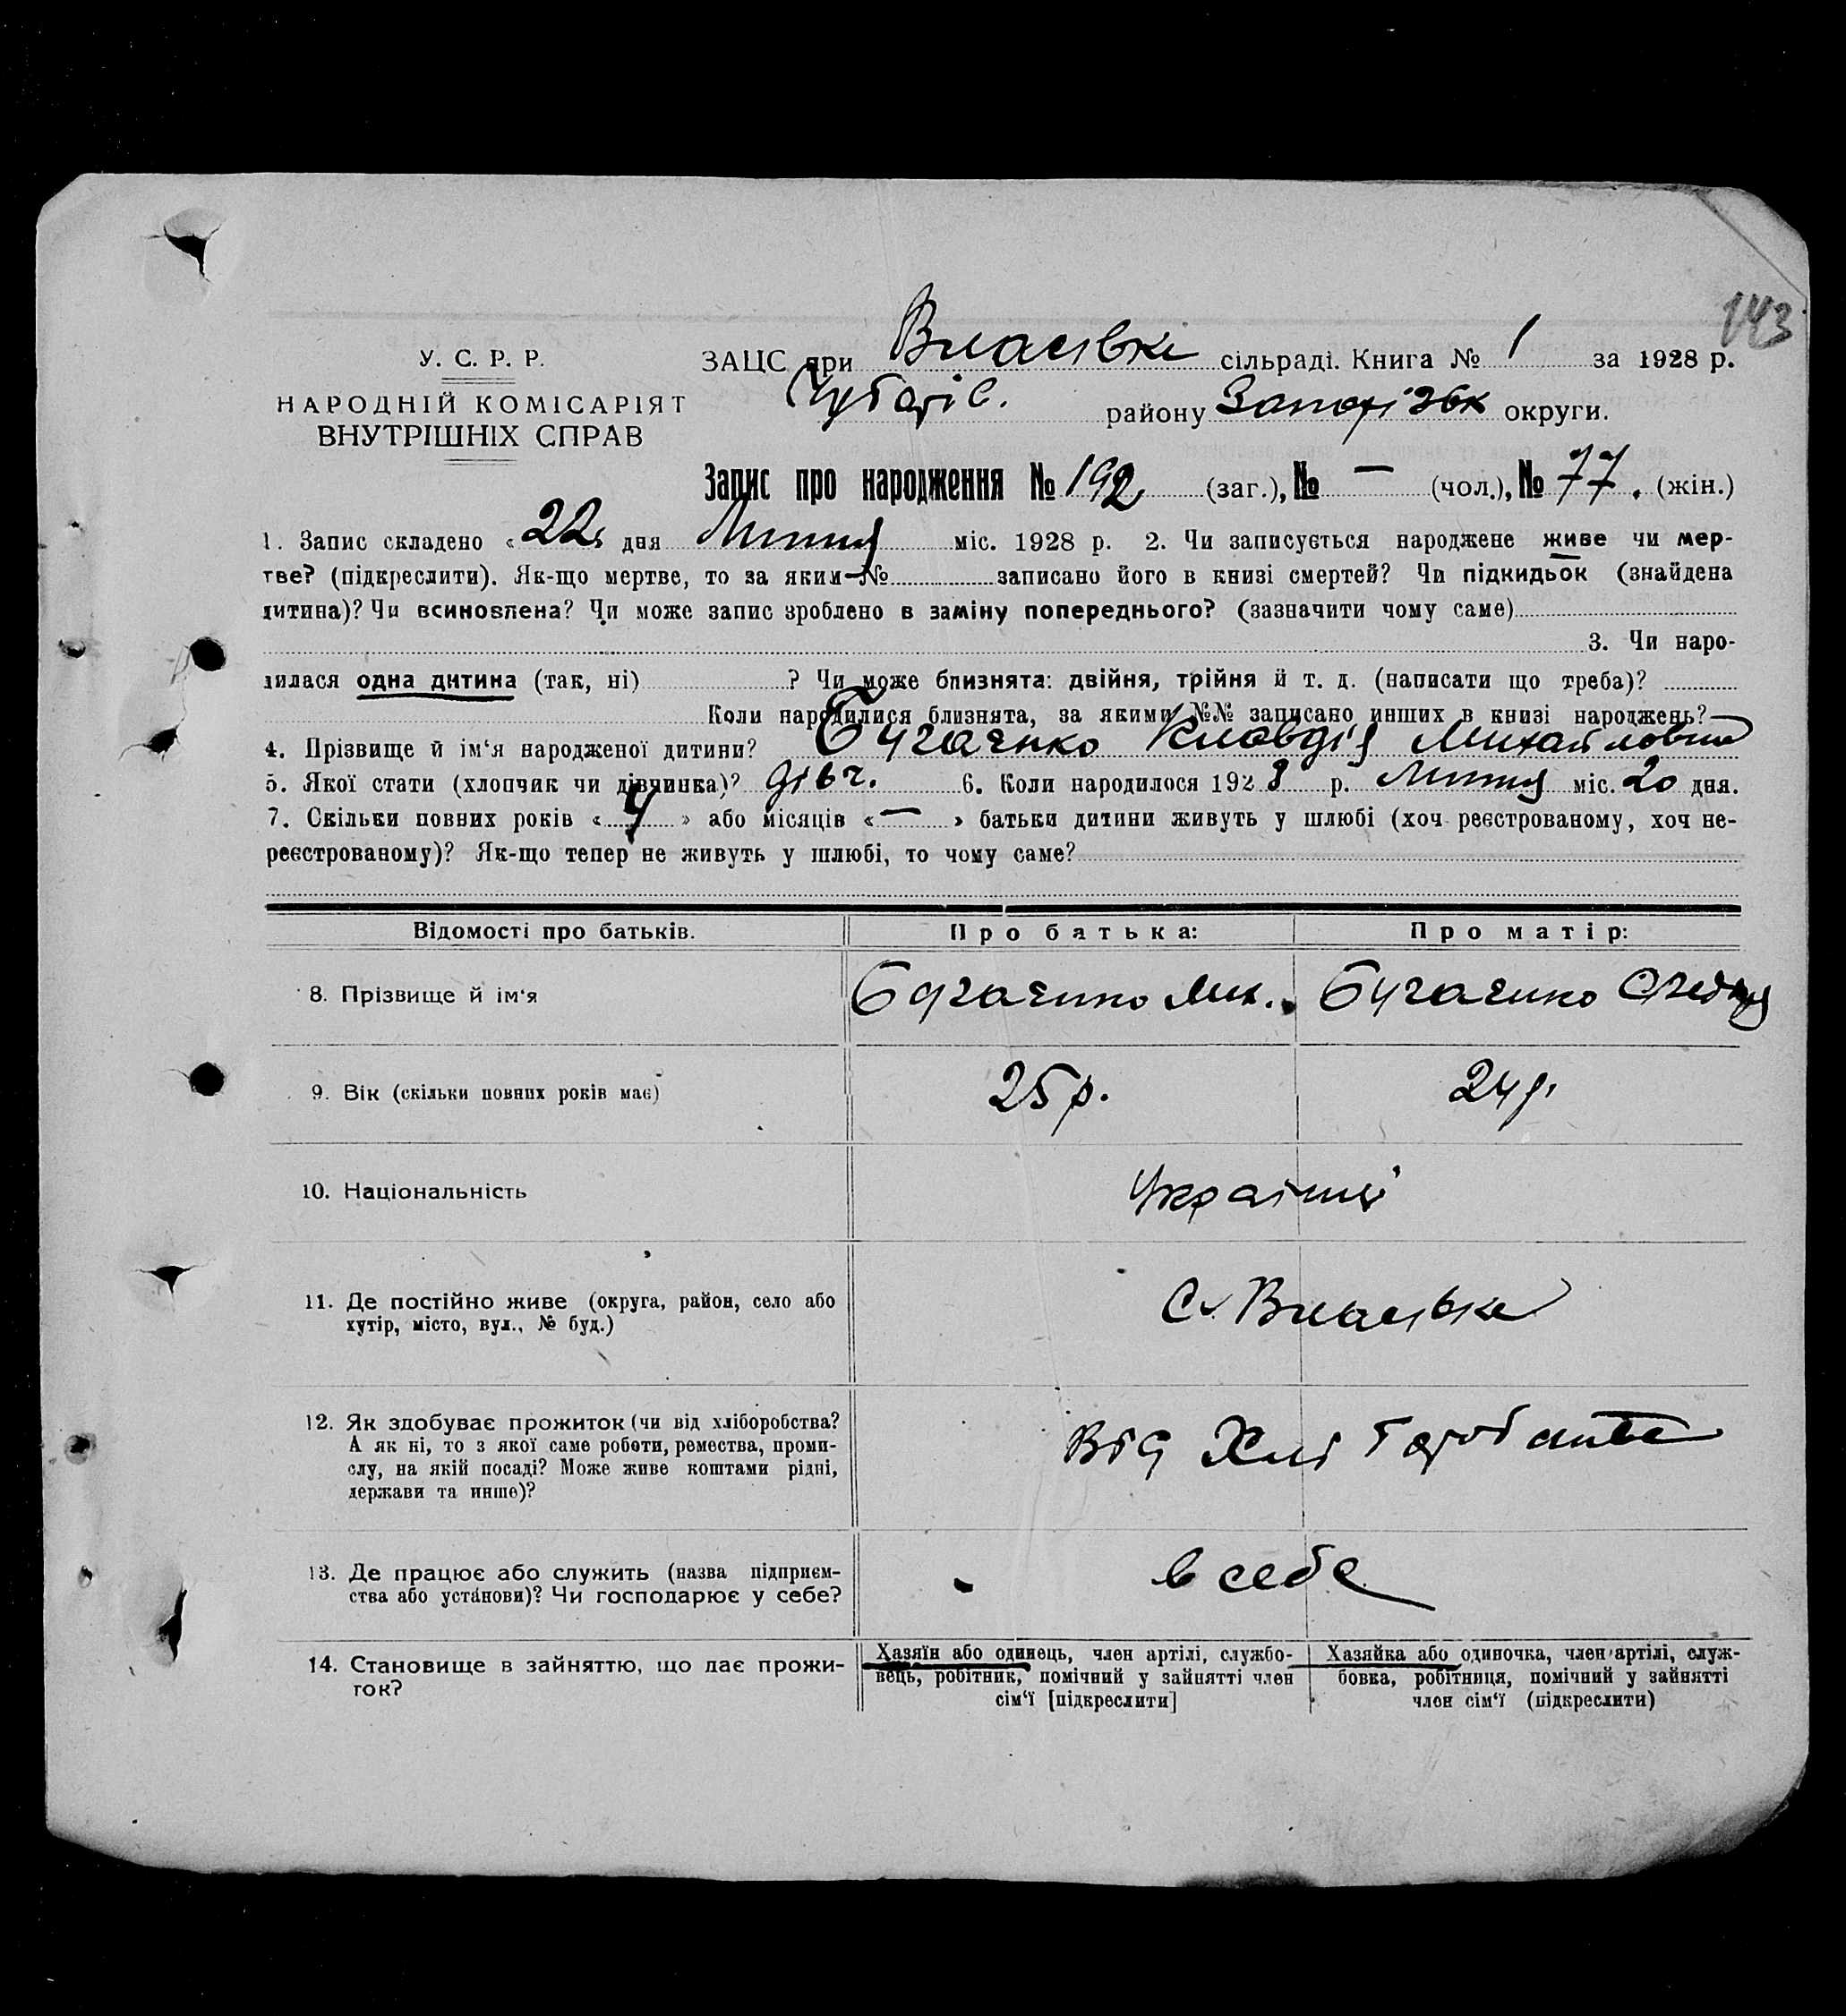 143
У. С. Р. Р.
НАРОДНІЙ КОМІСАРІЯТ
ВНУТРІШНІХ СПРАВ
ЗАЦС при Власівкі сільраді. Книга № 1 за 1928 р.
Чубарів. району Запорізьк округи.
Запис про народження № 192 (заг.), № — (чол.), № 77. (жін.)
1. Запис складено « 22 дня Липня міс. 1928 р. 2. Чи записується народжене живе чи мер-
тве? (підкреслити). Як-що мертве, то за яким № записано його в книзі смертей? Чи підкидьок (знайдена
дитина)? Чи всиновлена? Чи може запис зроблено в заміну попереднього? (зазначити чому саме)
3. Чи наро-
дилася одна дитина (так, ні) ? Чи може близнята: двійня, трійня й т. д. (написати що треба)?
Коли народилися близнята, за якими №№ записано инших в книзі народжень? —
4. Прізвище й ім‘я народженої дитини? Бугаенко Клавдія Михайловна
5. Якої стати (хлопчик чи дівчинка)? дівч. 6. Коли народилося 1928 р. Липня міс. 20 дня.
7. Скільки повних років « 4 » або місяців « — » батьки дитини живуть у шлюбі (хоч реєстрованому, хоч не-
реєстрованому)? Як-що тепер не живуть у шлюбі, то чому саме?
Відомості про батьків. Про батька: Про матір:
8. Прізвище й ім‘я Бугаенко Мих. Бугаенко
9. Вік (скільки повних років має) 25 р. 24 р.
10. Національність Українці
11. Де постійно живе (округа, район, село або
хутір, місто, вул., № буд.) С. Власівка
12. Як здобуває прожиток (чи від хліборобства?
А як ні, то з якої саме роботи, ремества, проми-
слу, на якій посаді? Може живе коштами рідні,
держави та инше)? Від Хліборобства
13. Де працює або служить (назва підприєм-
ства або установи)? Чи господарює у себе? в себе
14. Становище в зайняттю, що дає прожи-
ток?
Хазяїн або одинець, член артілі, службо-
вець, робітник, помічний у зайнятті член
сім‘ї [підкреслити]
Хазяйка або одиночка, член артілі, служ-
бовка, робітниця, помічний у зайнятті
член сім‘ї (підкреслити)